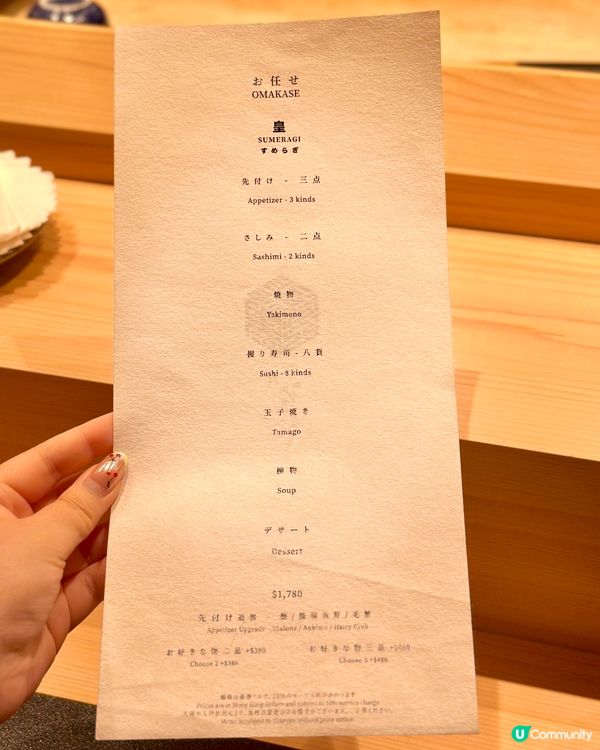 お任せ
OMAKASE
皇
SUMERAGI
すめらぎ
先付け - 三点
Appetizer - 3 kinds
さしみ - 二点
Sashimi - 2 kinds
焼物
Yakimono
握り寿司 - 八貫
Sushi - 8 kinds
玉子焼き
Tamago
椀物
Soup
デザート
Dessert
$1,780
先付け追加 - 鮑/鮟鱇魚肝/毛蟹
Appetizer Upgrade - Abalone / Ankimo / Hairy Crab
お好きな物二品 +$380
お好きな物三品 +$480
Choose 2 +$380
Choose 3 +$480
Prices are in Hong Kong dollars and subject to 10% service charge
Menu is subject to changes without prior notice
U Community